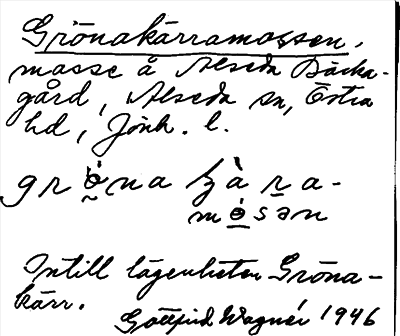 Grönakärramossen.
mosse å Alseda Backa-
gård, Alseda sn, Östra
hd, Jönk. l.
grö̀na ʒà ra-
mósən
Intill lägenheten Gröna-
kärr.
Gottfrid Wagnér 1946